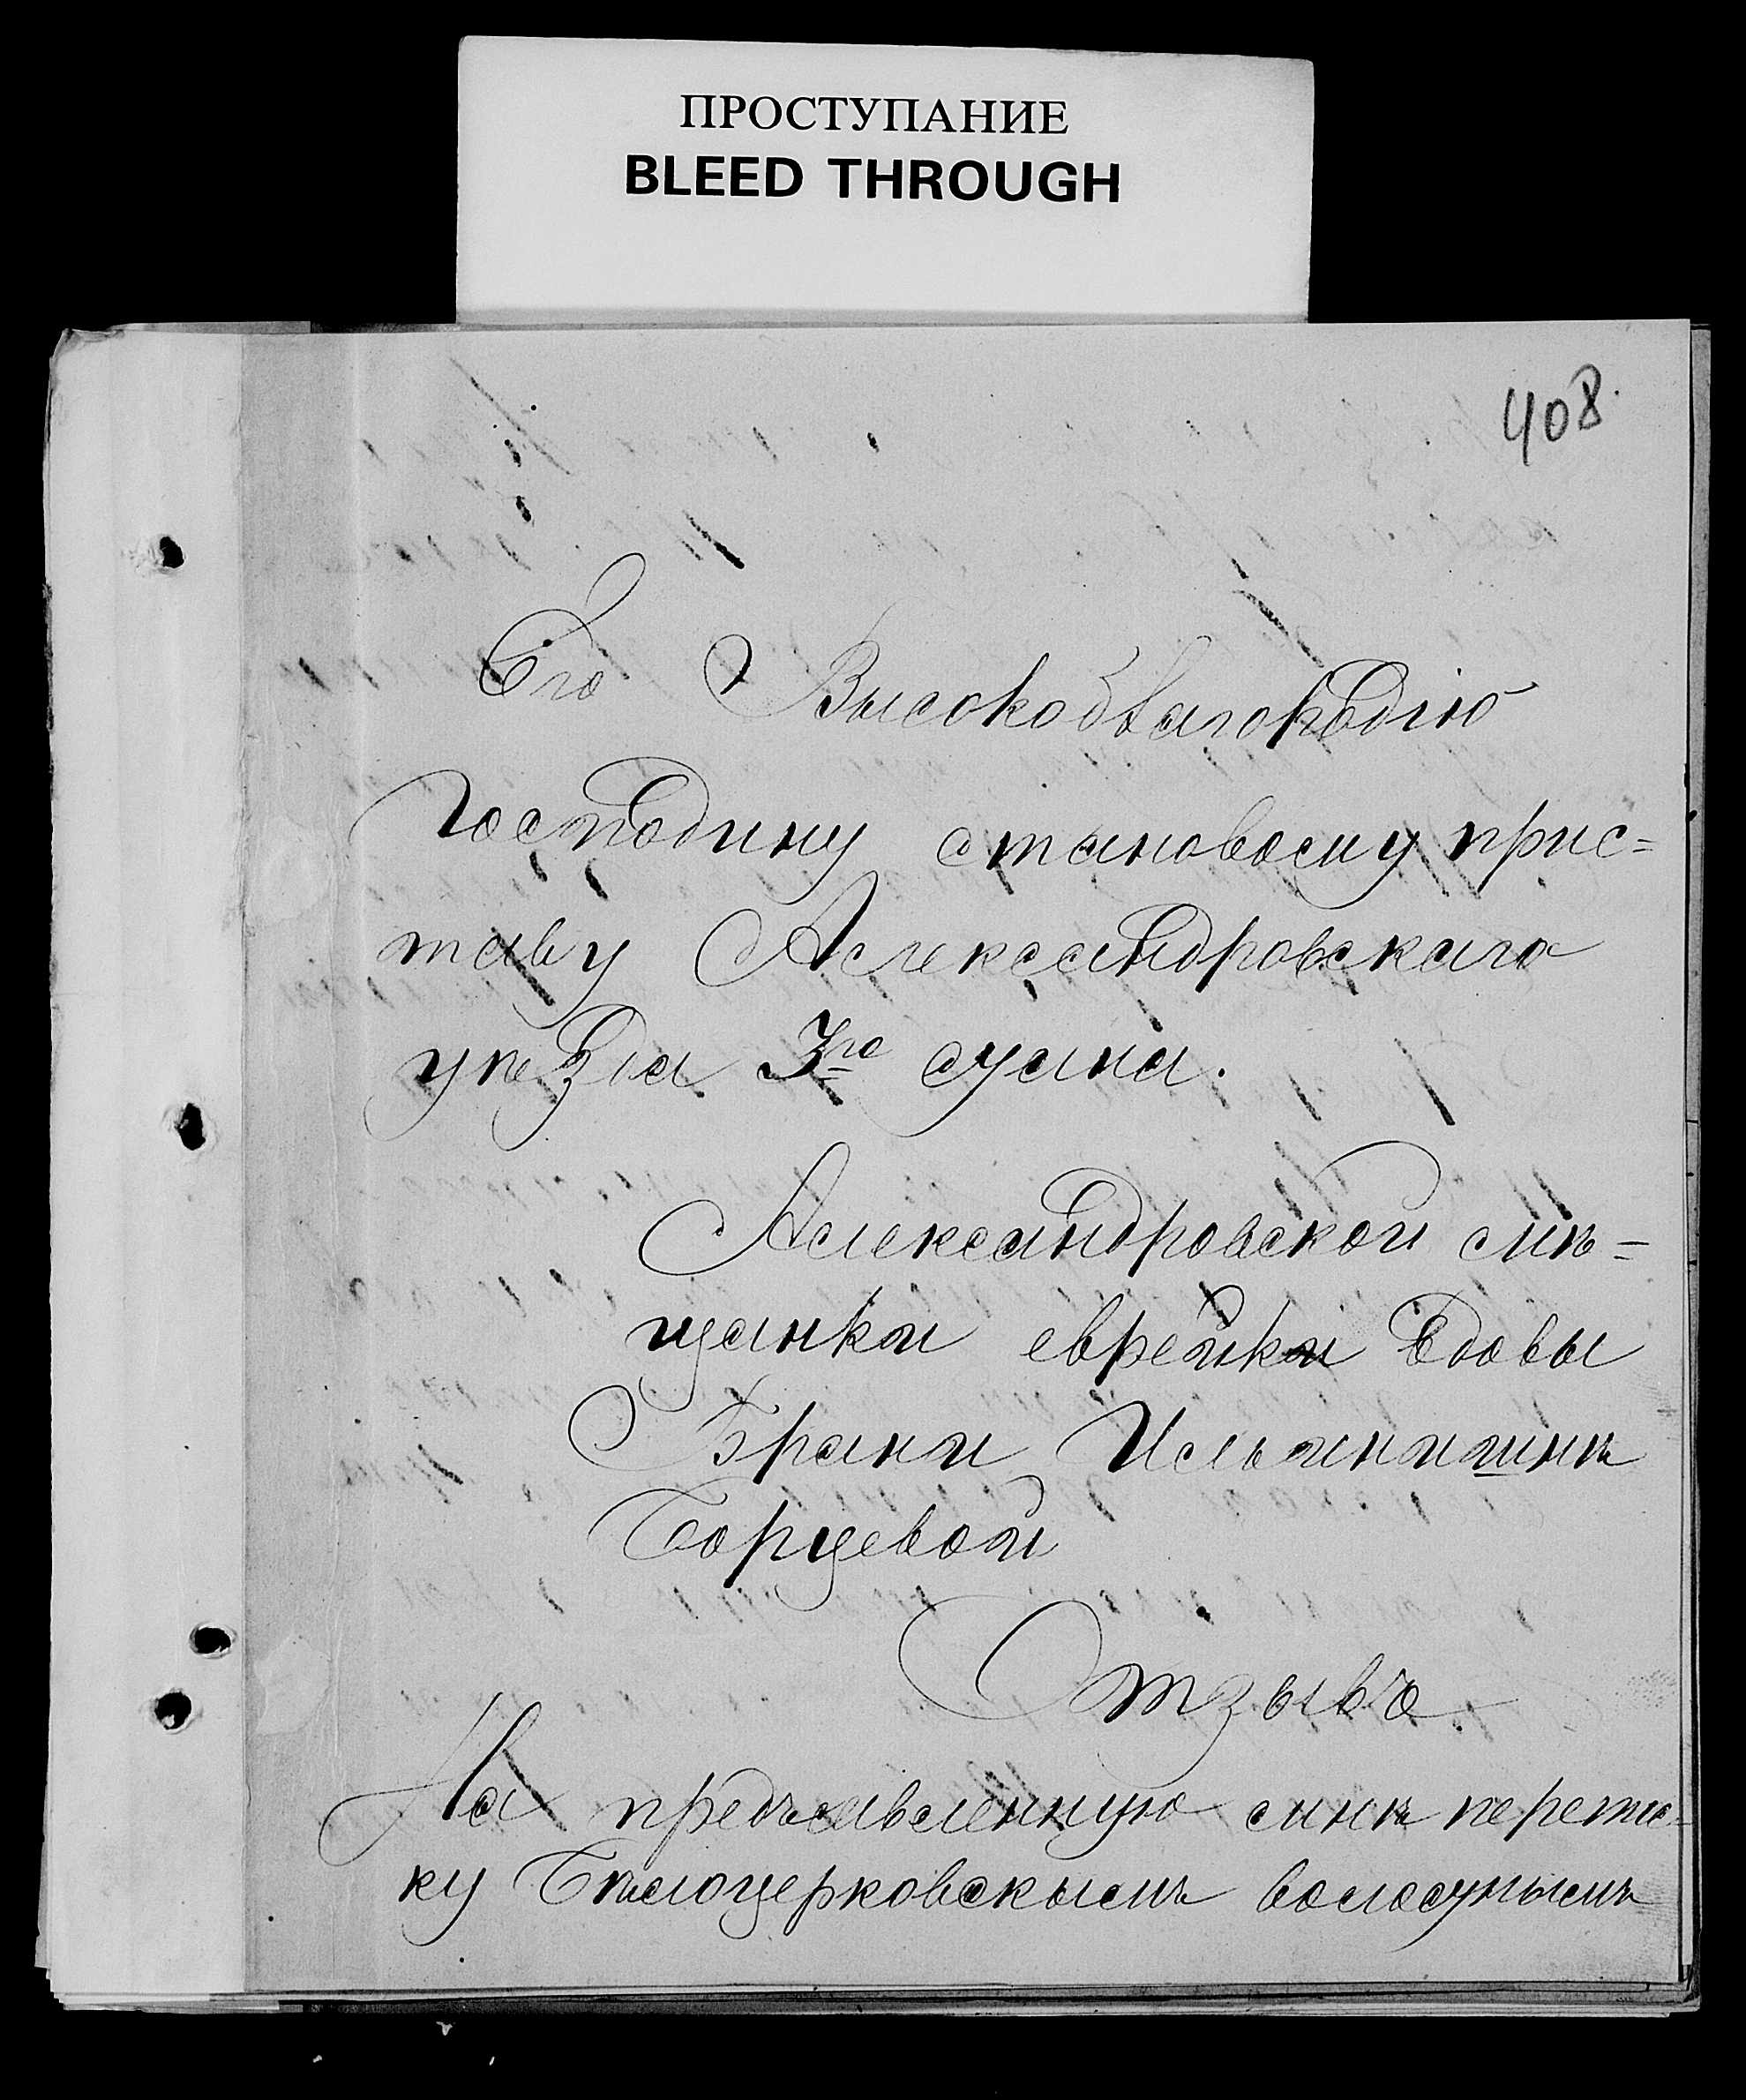 ПРОСТУПАНИЕ
BLEED THROUGH
408.
Его Высокоблагородію
Господину становому прис=
таву Александровскаго
уѣзда 3го стана.
Александровской мѣ=
щанки еврейки вдовы
Брани
Борцевой
Отзывъ.
На предъявленную мнѣ перепис-
ку Бѣлоцерковскымъ волостнымъ